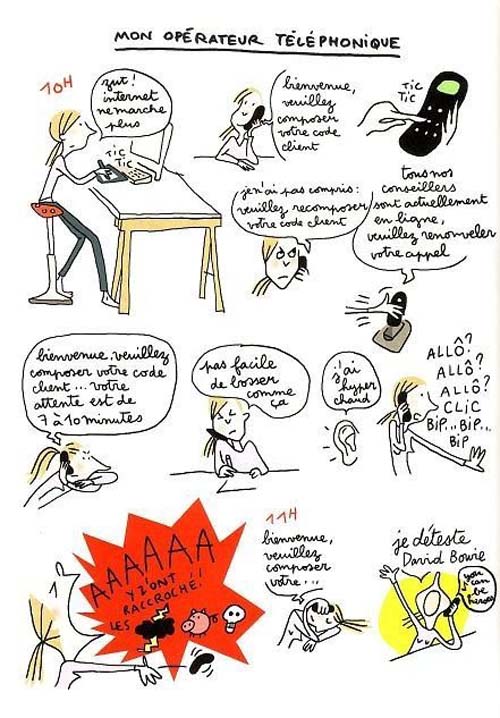 MON OPÉRATEUR TÉLÉPHONIQUE
10H
zut!
internet
ne marche
plus
TIC
TIC
bienvenue,
veuillez
composer
votre code
client
TIC
TIC
je n'ai pas compris:
veuillez recomposer
votre code client
tous nos
conseillers
sont actuellement
en ligne,
veuillez renouveler
votre appel
bienvenue, veuillez
composer votre code
client... votre
attente est de
7 à 10 minutes
pas facile
de bosser
comme
ça
j'ai
hyper
chaud
ALLÔ?
ALLÔ?
ALLÔ?
CLIC
BIP... BIP...
BIP
AAAAAAA
Y Z'ONT
RACCROCHÉ!!
LES
11H
bienvenue,
veuillez
composer
votre...
je déteste
David Bowie
you
can
be
heroes